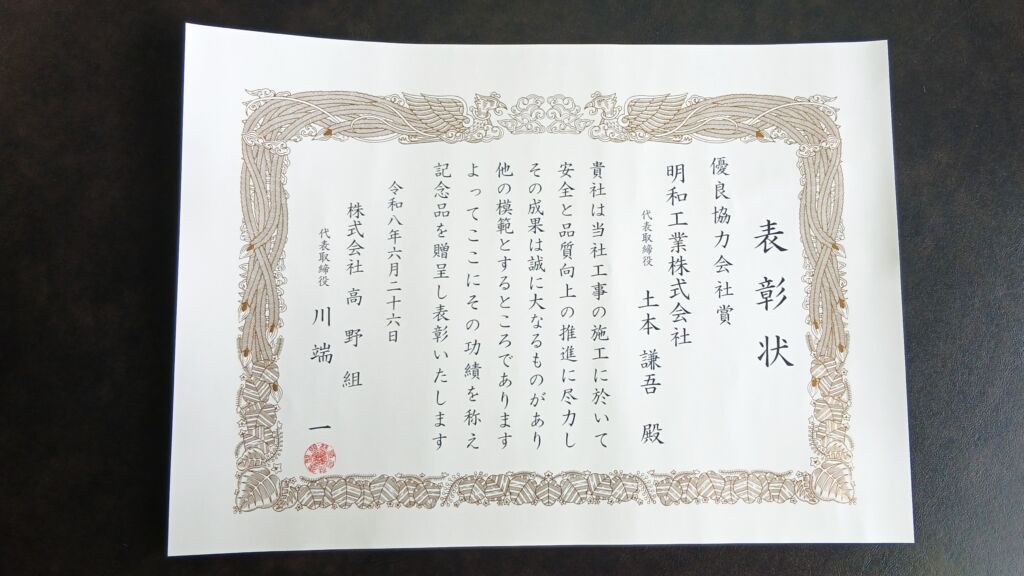 表彰状
優良協力会社賞
明和工業株式会社
代表取締役 土本 謙吾 殿
貴社は当社工事の施工に於いて
安全と品質向上の推進に尽力し
その成果は誠に大なるものがあり
他の模範とするところであります
よってここにその功績を称え
記念品を贈呈し表彰いたします
令和八年六月二十六日
株式会社 高野組
代表取締役 川端 一